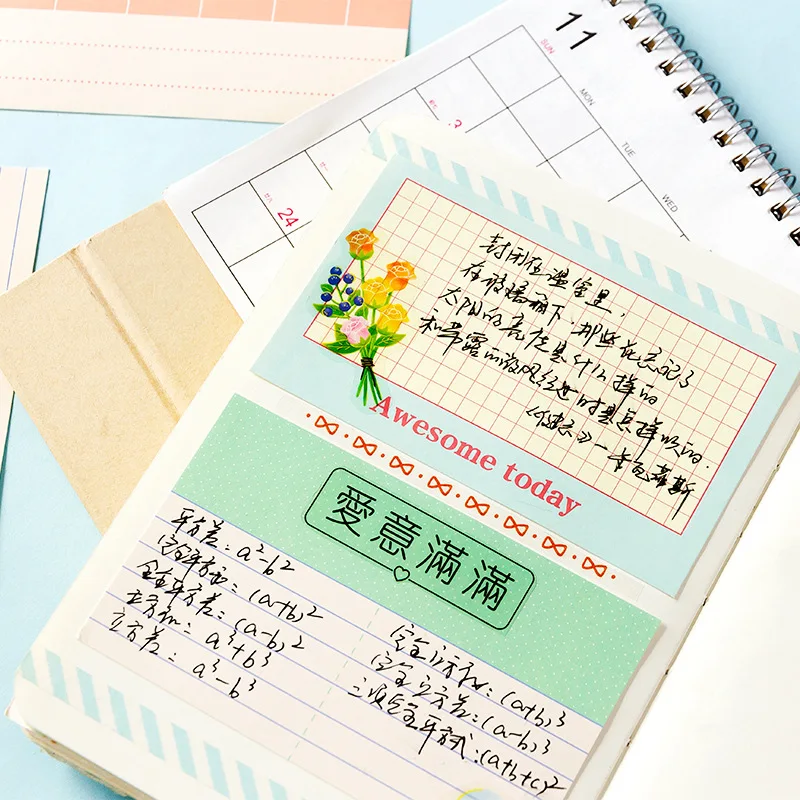 11
SUN
MON
TUE
WED
3
24
廿八
封闭在温室里,
在玻璃棚下,那些花忘记了
太阳的亮使是什么样的
和带露的微风经过时是怎样吹的.
《健忘》—卡瓦菲斯
Awesome today
愛意滿滿
平方差:a²-b²
完全平方和:(a+b)²
完全平方差:(a-b)²
立方和:a³+b³
立方差:a³-b³
完全立方和:(a+b)³
完全立方差:(a-b)³
三项完全平方式:(a+b+c)²